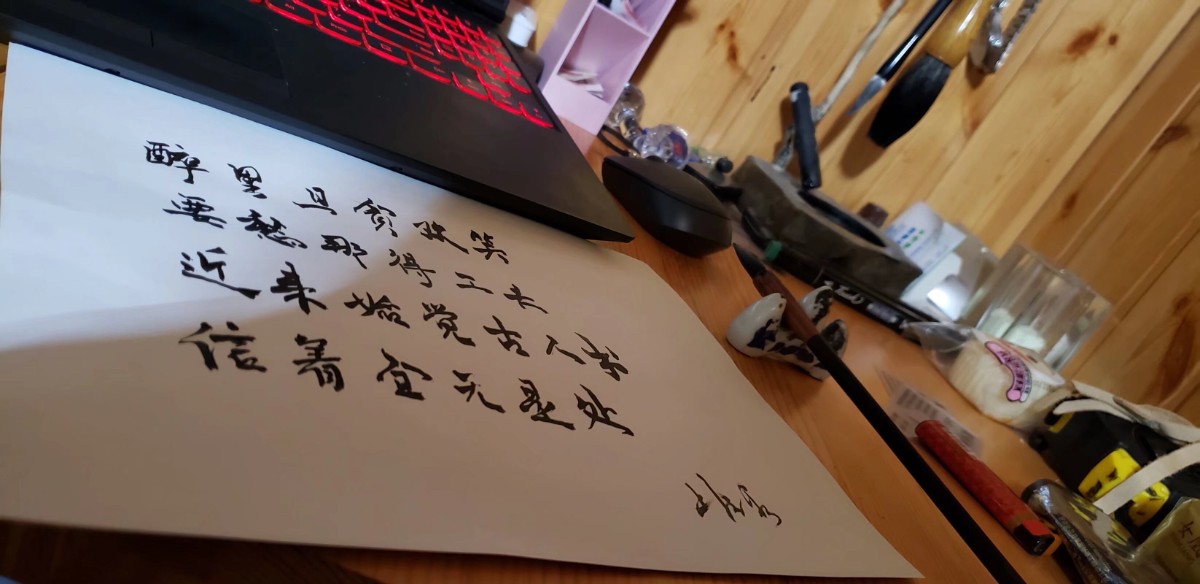 醉里且贪欢笑
要愁那得工夫
近来始觉古人书
信着全无是处